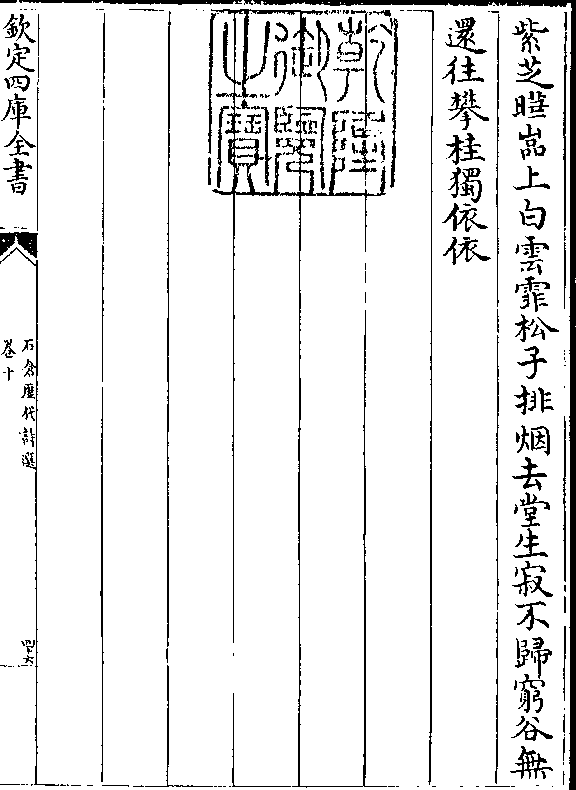 紫芝曄嵓上白雲霏松子排烟去堂生寂不歸窮谷無
還往攀桂獨依依
乾隆御覽之寶
欽定四庫全書
石倉歷代詩選
卷十
四十六